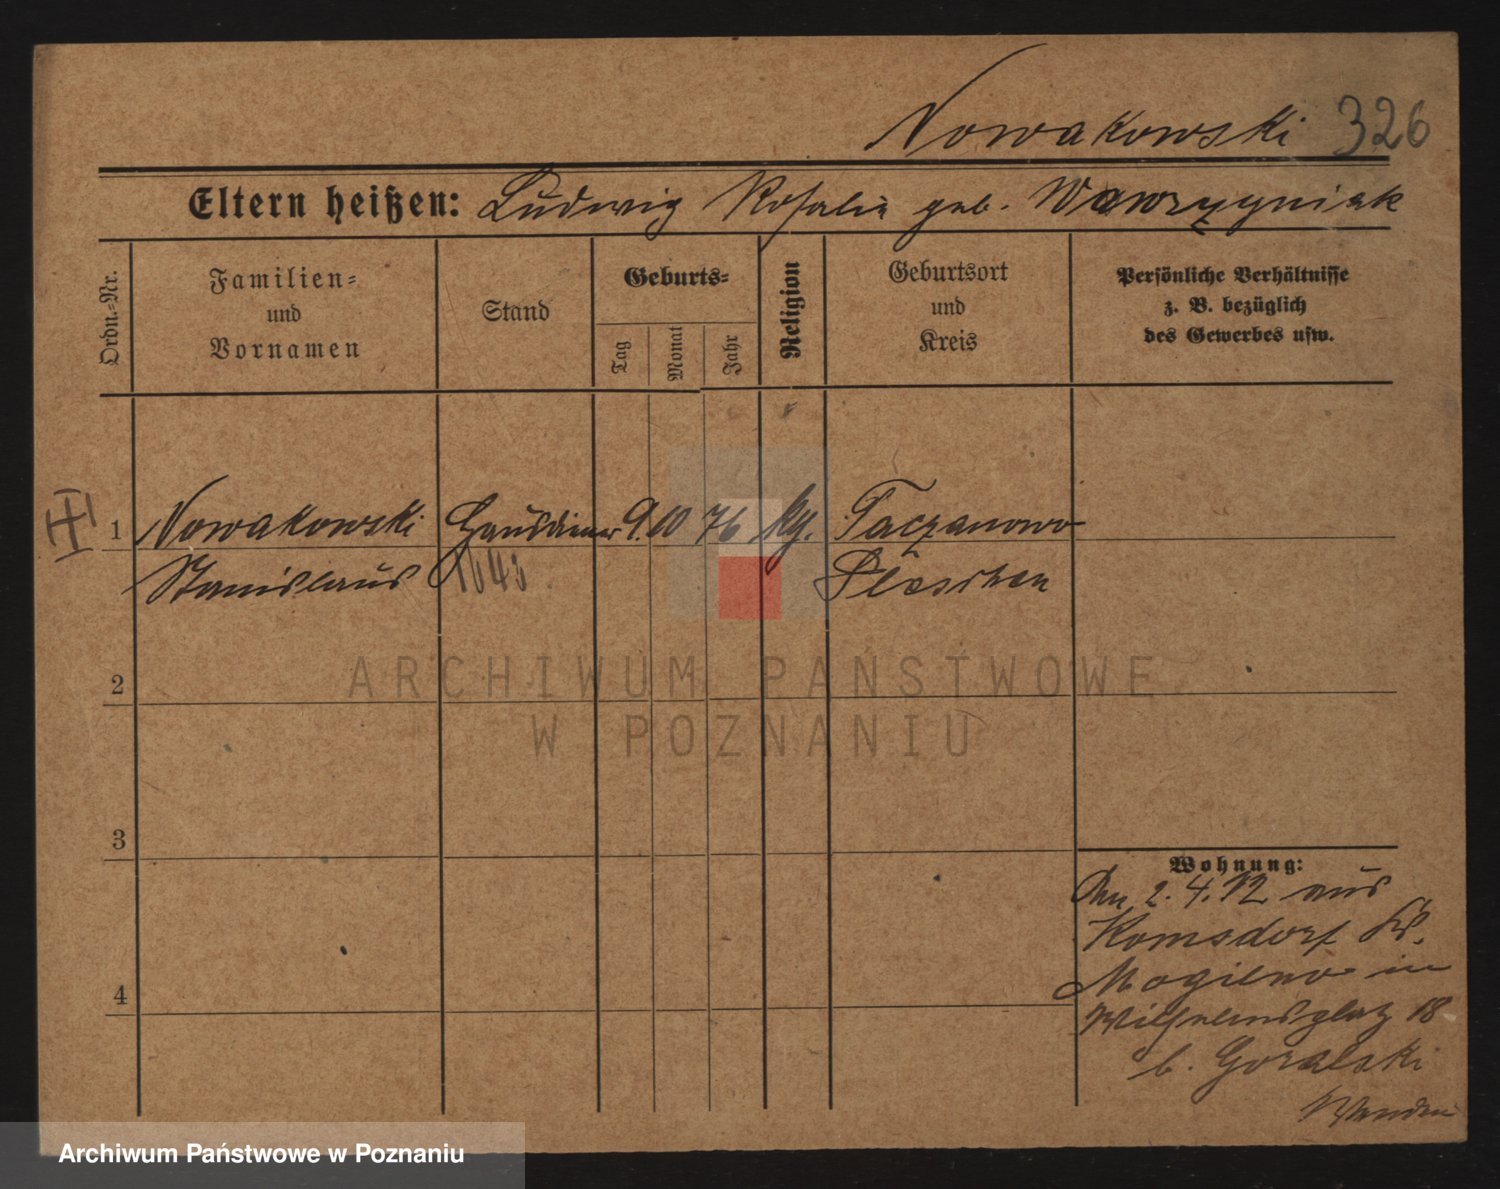 Nowakowski 326
Eltern heißen: Ludwig Rosalie geb. Wawrzyniak
Ordn.=Nr.
Familien=
und
Vornamen
Stand
Geburts=
Tag
Monat
Jahr
Religion
Geburtsort
und
Kreis
Persönliche Verhältnisse
z. B. bezüglich
des Gewerbes usw.
1 Nowakowski Hausdiener 9. 10 76 kg. Taczanowo
Stanislaus 1643 Pleschen
ARCHIWUM PAŃSTWOWE
W POZNANIU
2
3
4
Wohnung:
Den 2. 4. 12 aus
Komsdorf Kr.
Mogilno in
Wilhelmsplatz 18
b. Goralski
Wenden
Archiwum Państwowe w Poznaniu